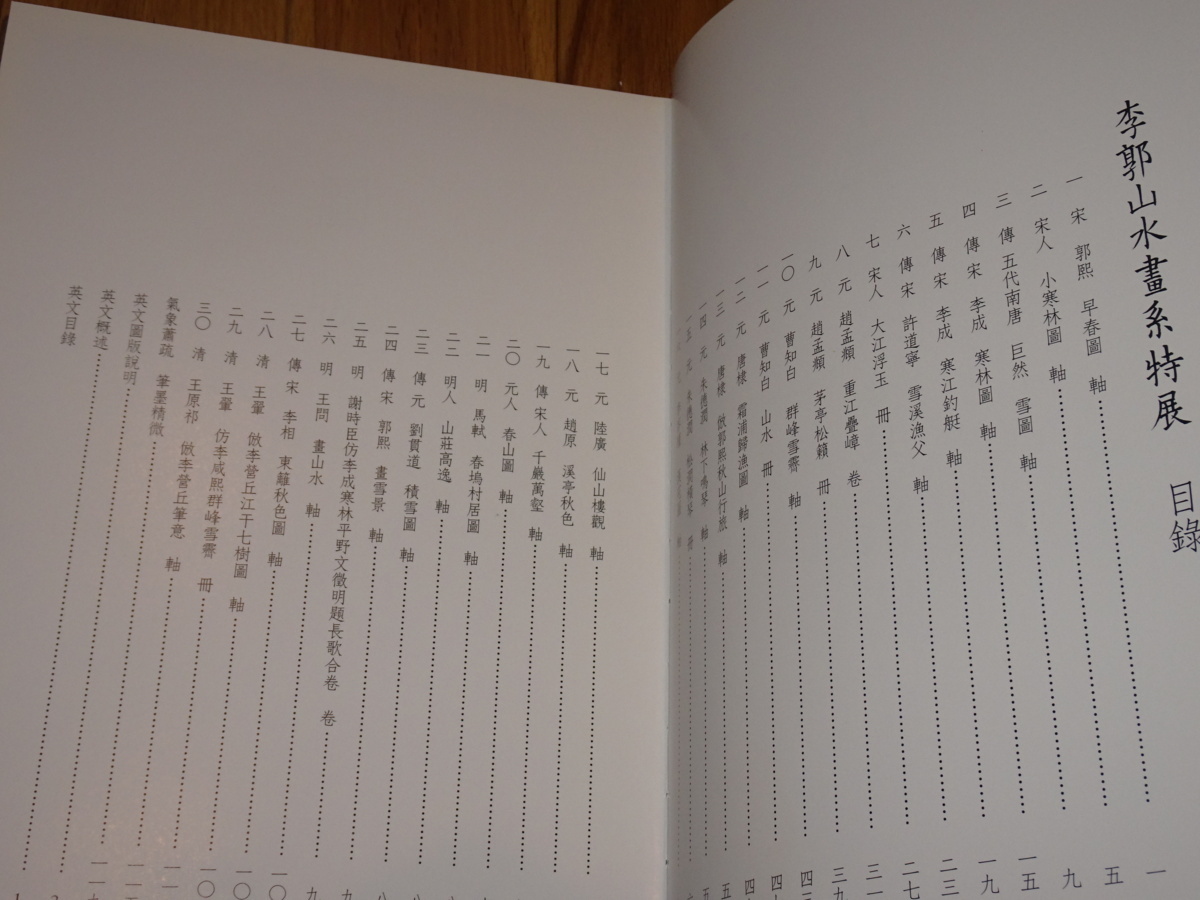 李郭山水畫系特展 目錄
一 宋 郭熙 早春圖 軸 一
二 宋人 小寒林圖 軸 五
三 傳五代南唐 巨然 雪圖 軸 九
四 傳宋 李成 寒林圖 軸 一五
五 傳宋 李成 寒江釣艇 軸 一九
六 傳宋 許道寧 雪溪漁父 軸 二三
七 宋人 大江浮玉 冊 二七
八 元 趙孟頫 重江疊嶂 卷 三一
九 元 趙孟頫 茅亭松籟 冊 三九
一〇 元 曹知白 群峰雪霽 軸
一一 元 曹知白 山水 冊
一二 元 唐棣 霜浦歸漁圖 軸
一三 元 唐棣 倣郭熙秋山行旅 軸
一四 元 朱德潤 林下鳴琴 軸
一五 元 朱德潤 松澗橫琴 冊
一七 元 陸廣 仙山樓觀 軸
一八 元 趙原 溪亭秋色 軸
一九 傳宋人 千巖萬壑 軸
二〇 元人 春山圖 軸
二一 明 馬軾 春塢村居圖 軸
二二 明人 山莊高逸 軸
二三 傳元 劉貫道 積雪圖 軸
二四 傳宋 郭熙 畫雪景 軸
二五 明 謝時臣仿李成寒林平野文徵明題長歌合卷 卷
二六 明 王問 畫山水 軸
二七 傳宋 李相 東籬秋色圖 軸
二八 清 王翬 倣李營丘江干七樹圖 軸
二九 清 王翬 仿李咸熙群峰雪霽 冊
三〇 清 王原祁 倣李營丘筆意 軸
氣象蕭疏 筆墨精微
英文圖版說明
英文概述
英文目錄